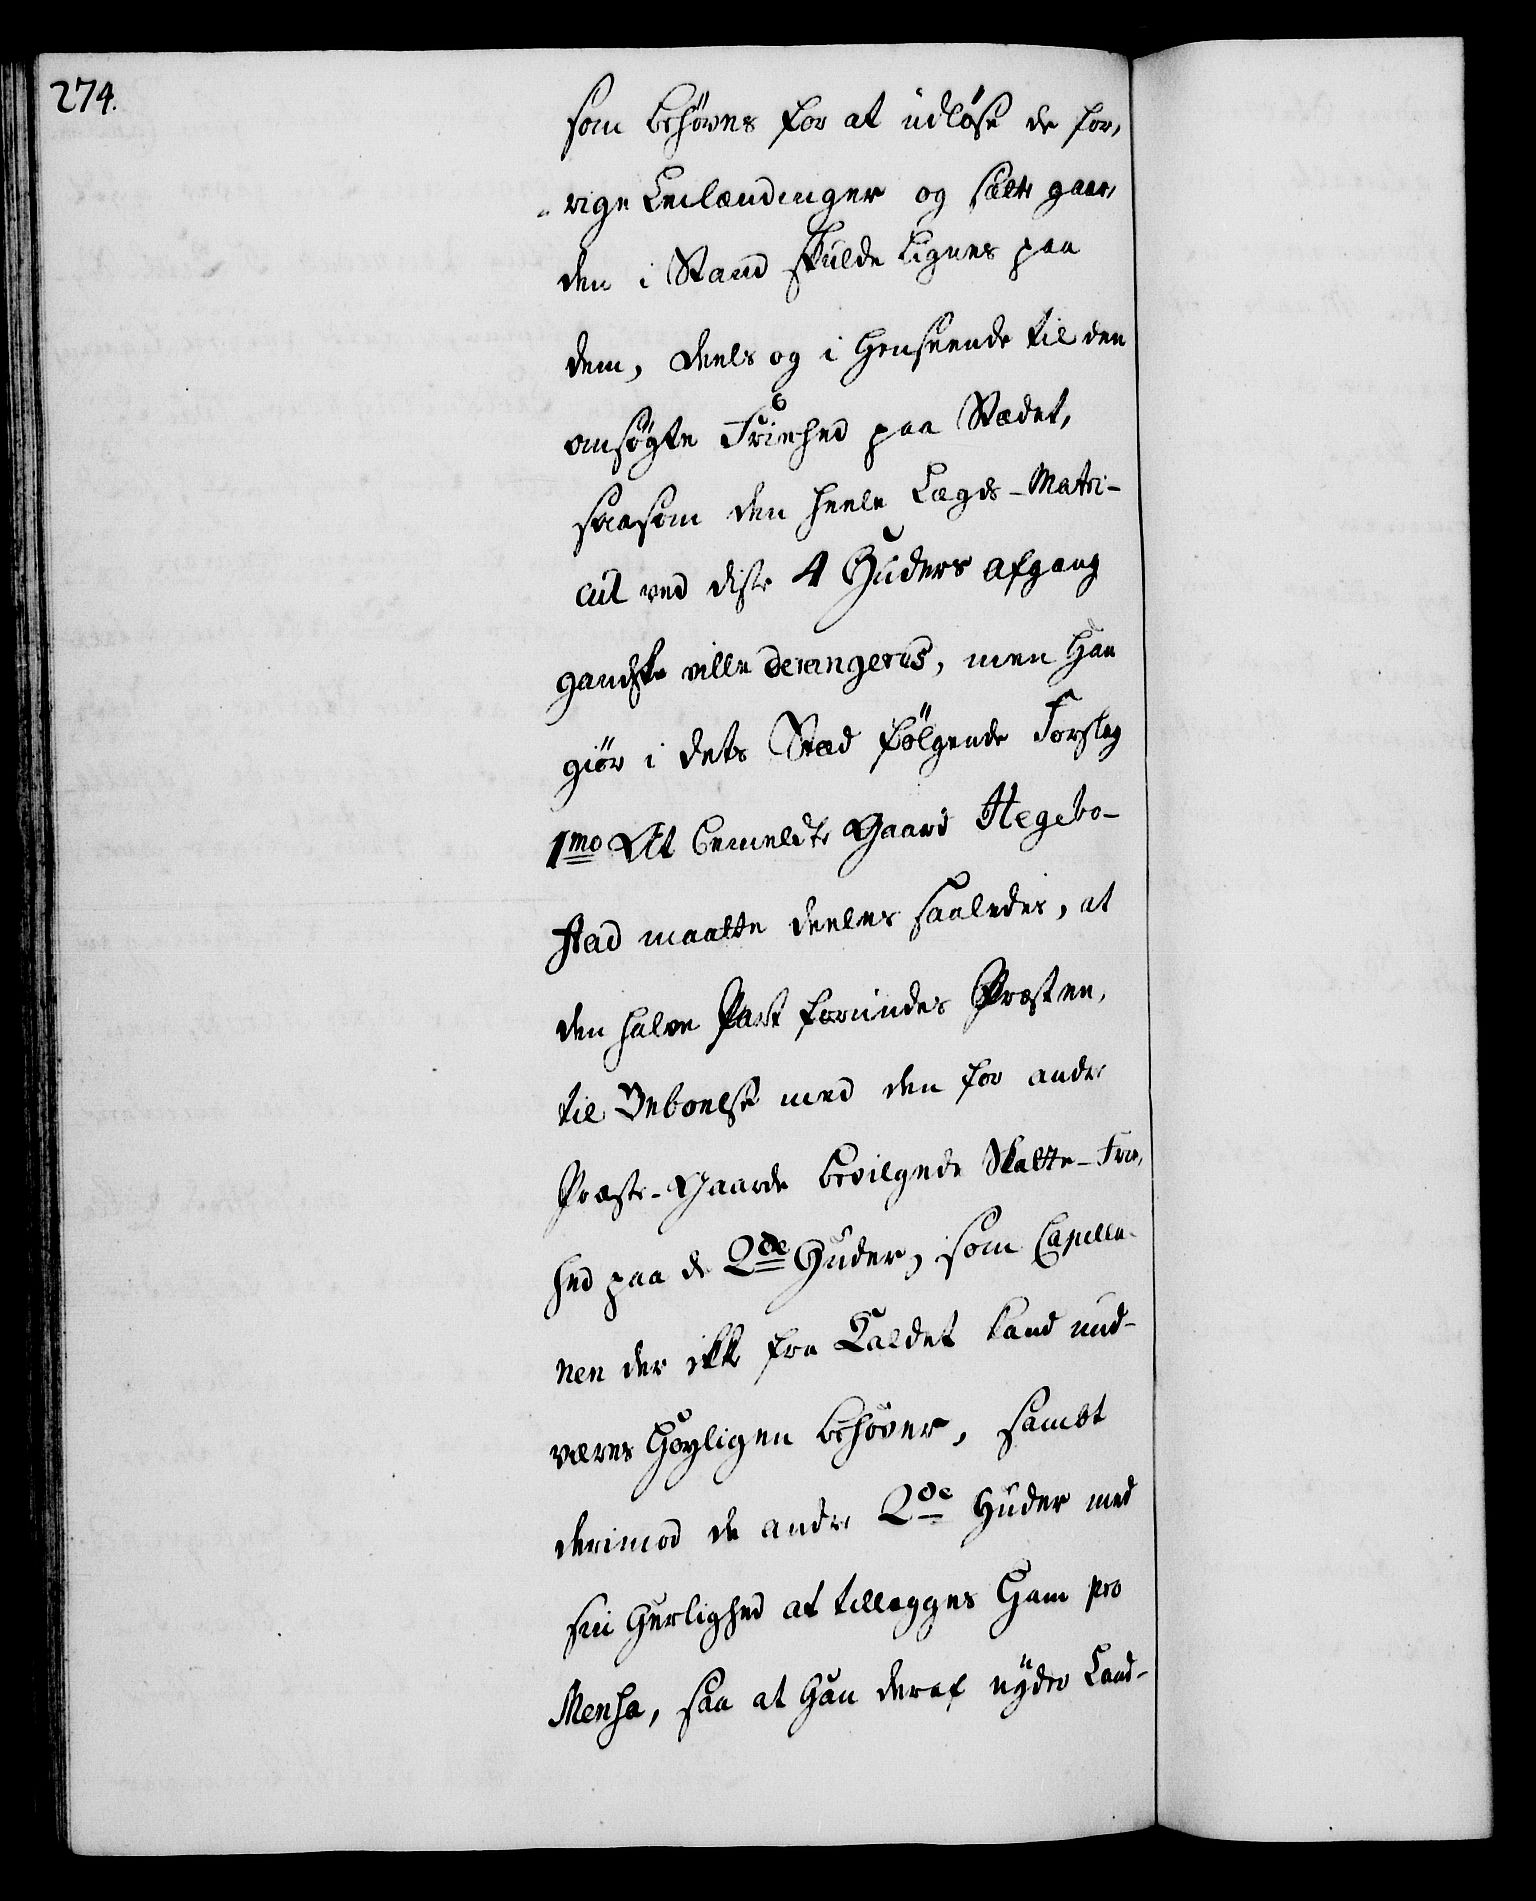 274.
som behöves for at üdlöse de for,
rige Leilændinger og sætte gaar,
den i Stand skulde lignes paa
dem, deels og i henseende til den
ansøgte Friehed paa Stædet,
saasom den heele Lægds-Matri-
cul ved disse 4 Huders afgang
gandske ville derangeres, men han
giör i dets Sted følgende Forslag
1mo At bemeldte Gaard Hegebo-
stad maatte deeles saaledes, at
den halve Part forundes Præsten,
til Beboelse med den for andre
Præste-Gaarde bevilgede Skatte-Frie,
hed paa de 2de Huder, som Capella-
nen der ikke fra Kaldet kand und-
være höyligen behöver, samt
derimod de andre 2de Huder med
sin Herlighed at tillægges Ham pro
Mensa, saa at han deraf nyder Land-